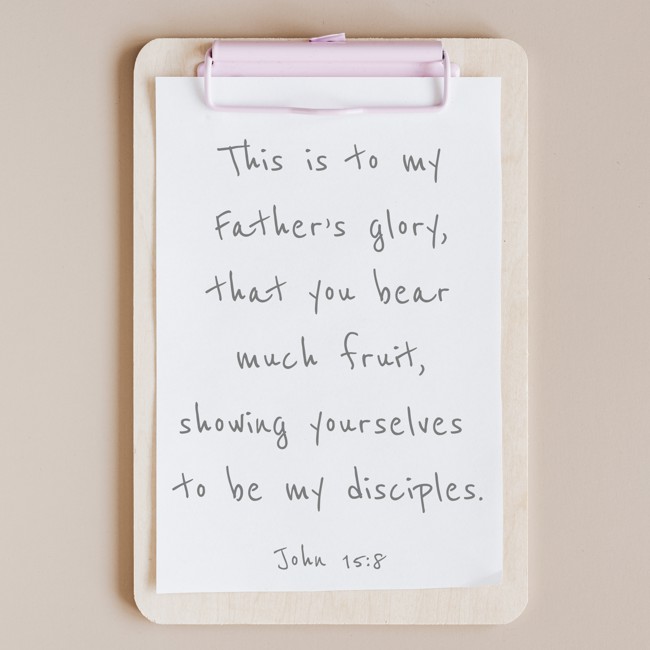 This is to my
Father's glory,
that you bear
much fruit,
showing yourselves
to be my disciples.
John 15:8